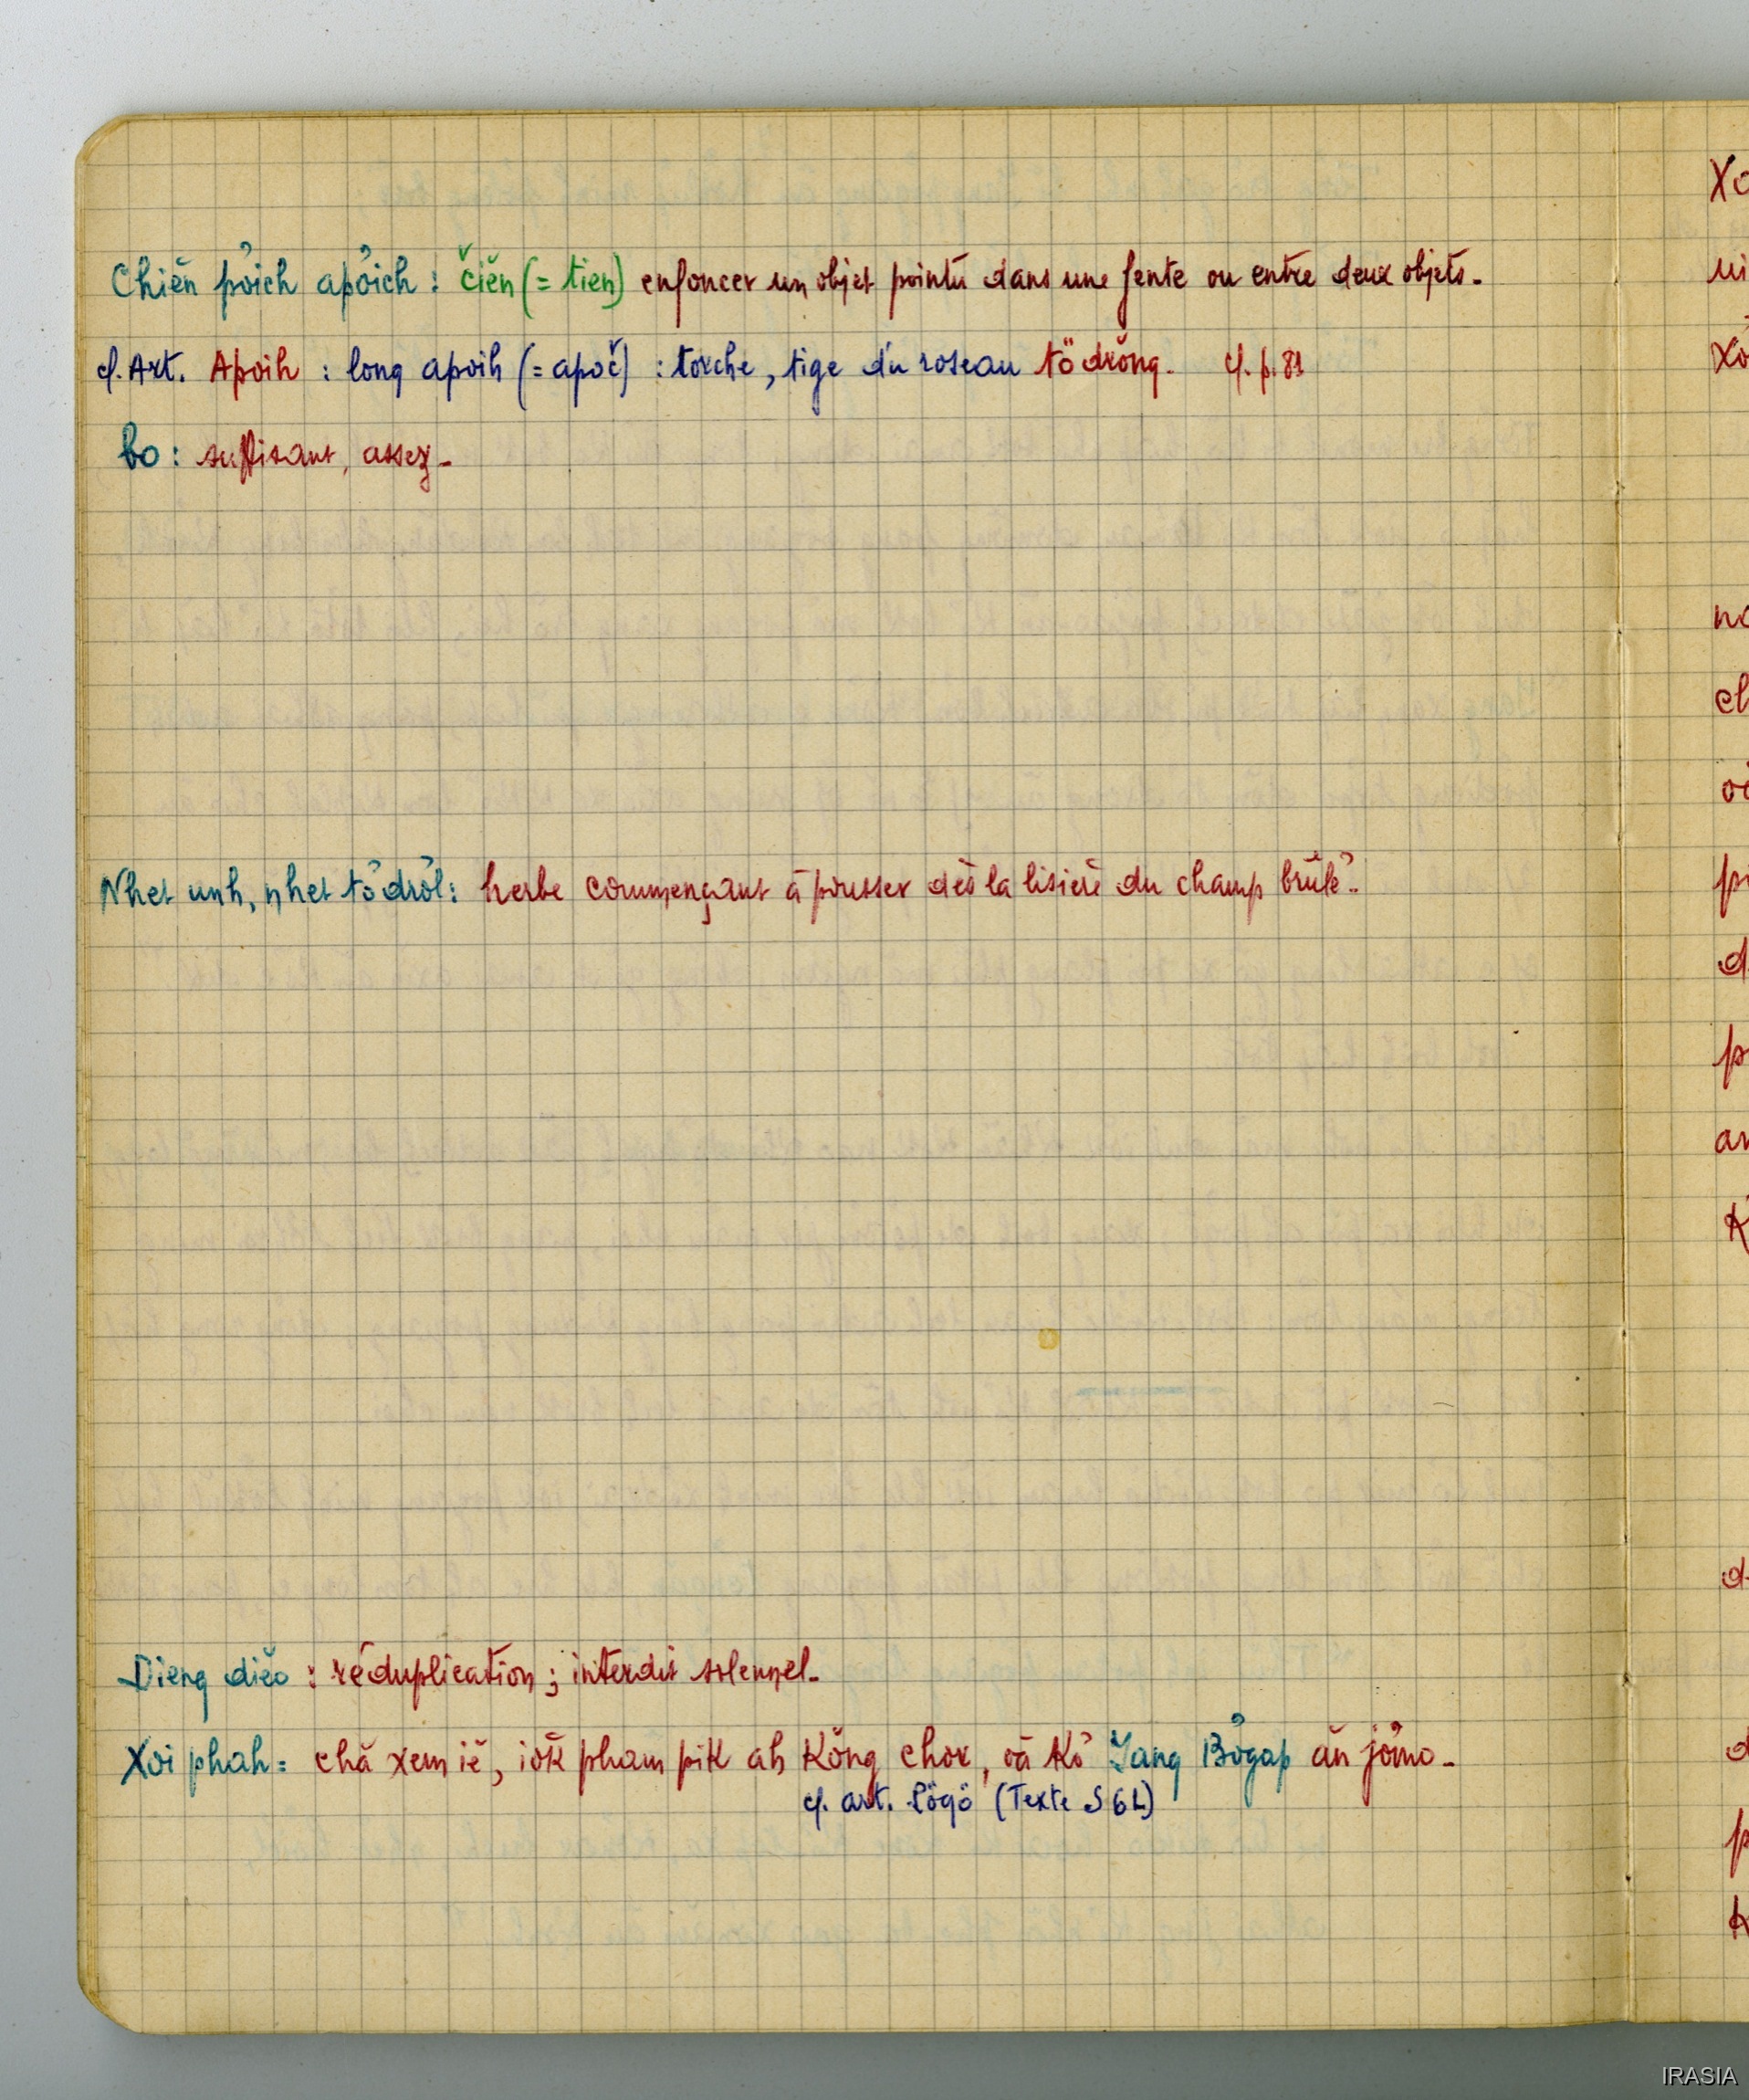 Chiĕn pơ̆ich apơ̆ich : čiĕn (= tien) enfoncer un objet pointu dans une fente ou entre deux objets.
cf. Art. Apoih : long apoih (= apoč) : torche, tige du roseau tödrŏng. cf. p. 81
bo : suffisant, assez.
Nhet unh, nhet tơdrơ̆l : herbe commençant à pousser dès la lisière du champ brûlé.
Dieng diĕo : réduplication ; interdit solennel.
Xoi phah = chă xem iĕ, iŏk pham pik ah Kŏng chor, oă Kơ Yang Bơ̆gap ăn jơ̆mo.
cf. art. lögö (Texte S 6L)
IRASIA